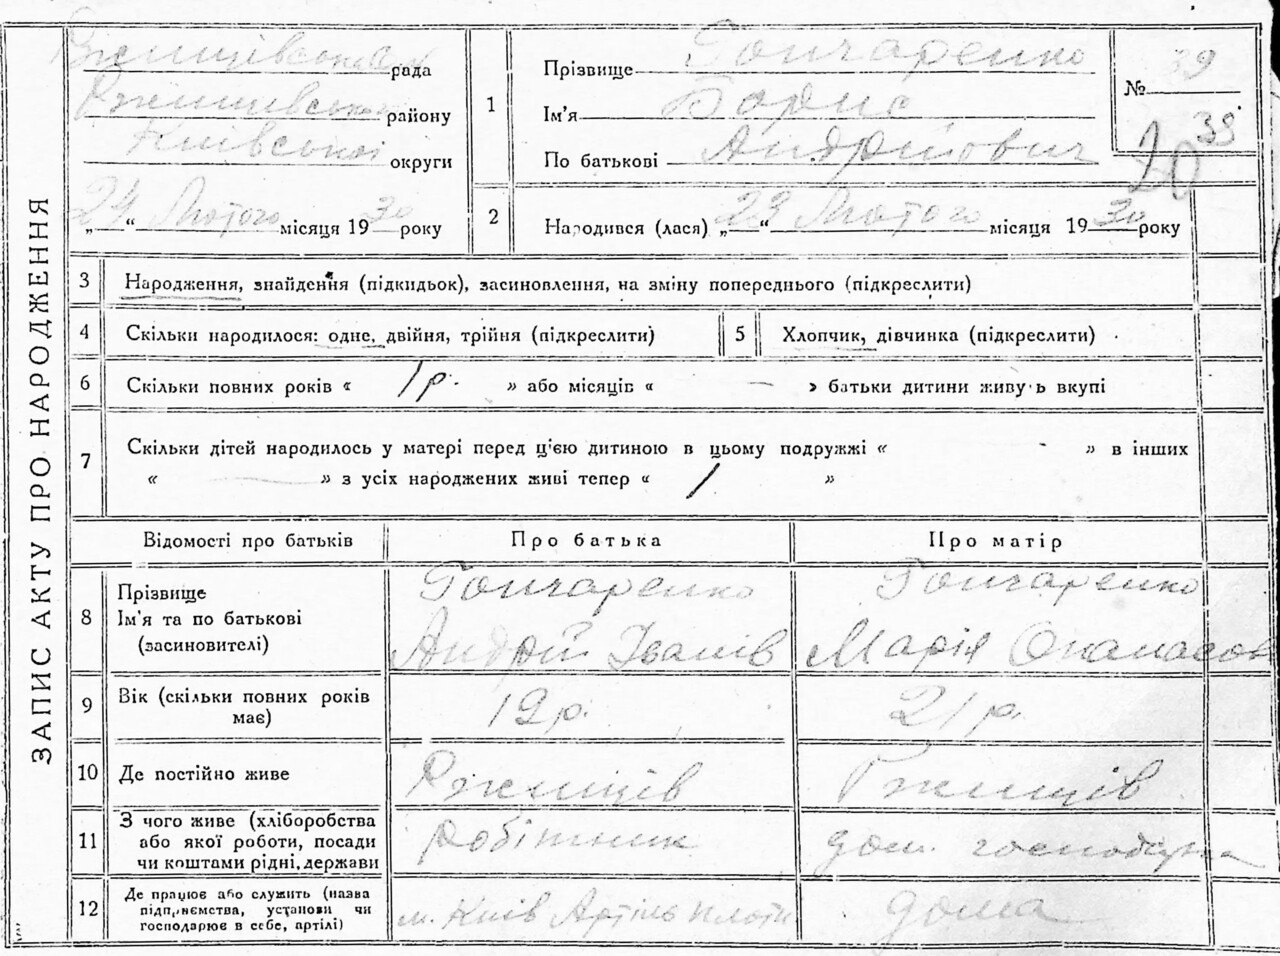 ЗАПИС АКТУ ПРО НАРОДЖЕННЯ
Ржищівська рада
Ржищівського району
Київської округи
„24“ Лютого місяця 1930 року
1
Прізвище Гончаренко
Ім'я Борис
По батькові Андрійович
№ 39
39
20
2
Народився (лася) „23“ Лютого місяця 1930 року
3 Народження, знайдення (підкидьок), засиновлення, на зміну попереднього (підкреслити)
4 Скільки народилося: одне, двійня, трійня (підкреслити)
5 Хлопчик, дівчинка (підкреслити)
6 Скільки повних років « 1 р. » або місяців « — » батьки дитини живуть вкупі
7 Скільки дітей народилось у матері перед ц'єю дитиною в цьому подружжі « - » в інших
« — » з усіх народжених живі тепер « 1 »
Відомості про батьків Про батька Про матір
8 Прізвище
Ім'я та по батькові
(засиновителі)
Гончаренко
Андрій Іванів
Гончаренко
Марія Опанасов
9 Вік (скільки повних років
має)
19 р. 21 р.
10 Де постійно живе Ржищів Ржищів
11 З чого живе (хліборобства
або якої роботи, посади
чи коштами рідні, держави
робітник
дом. господарка
12 Де працює або служить (назва
підприємства, установи чи
господарює в себе, артілі)
м. Київ Артіль
дома